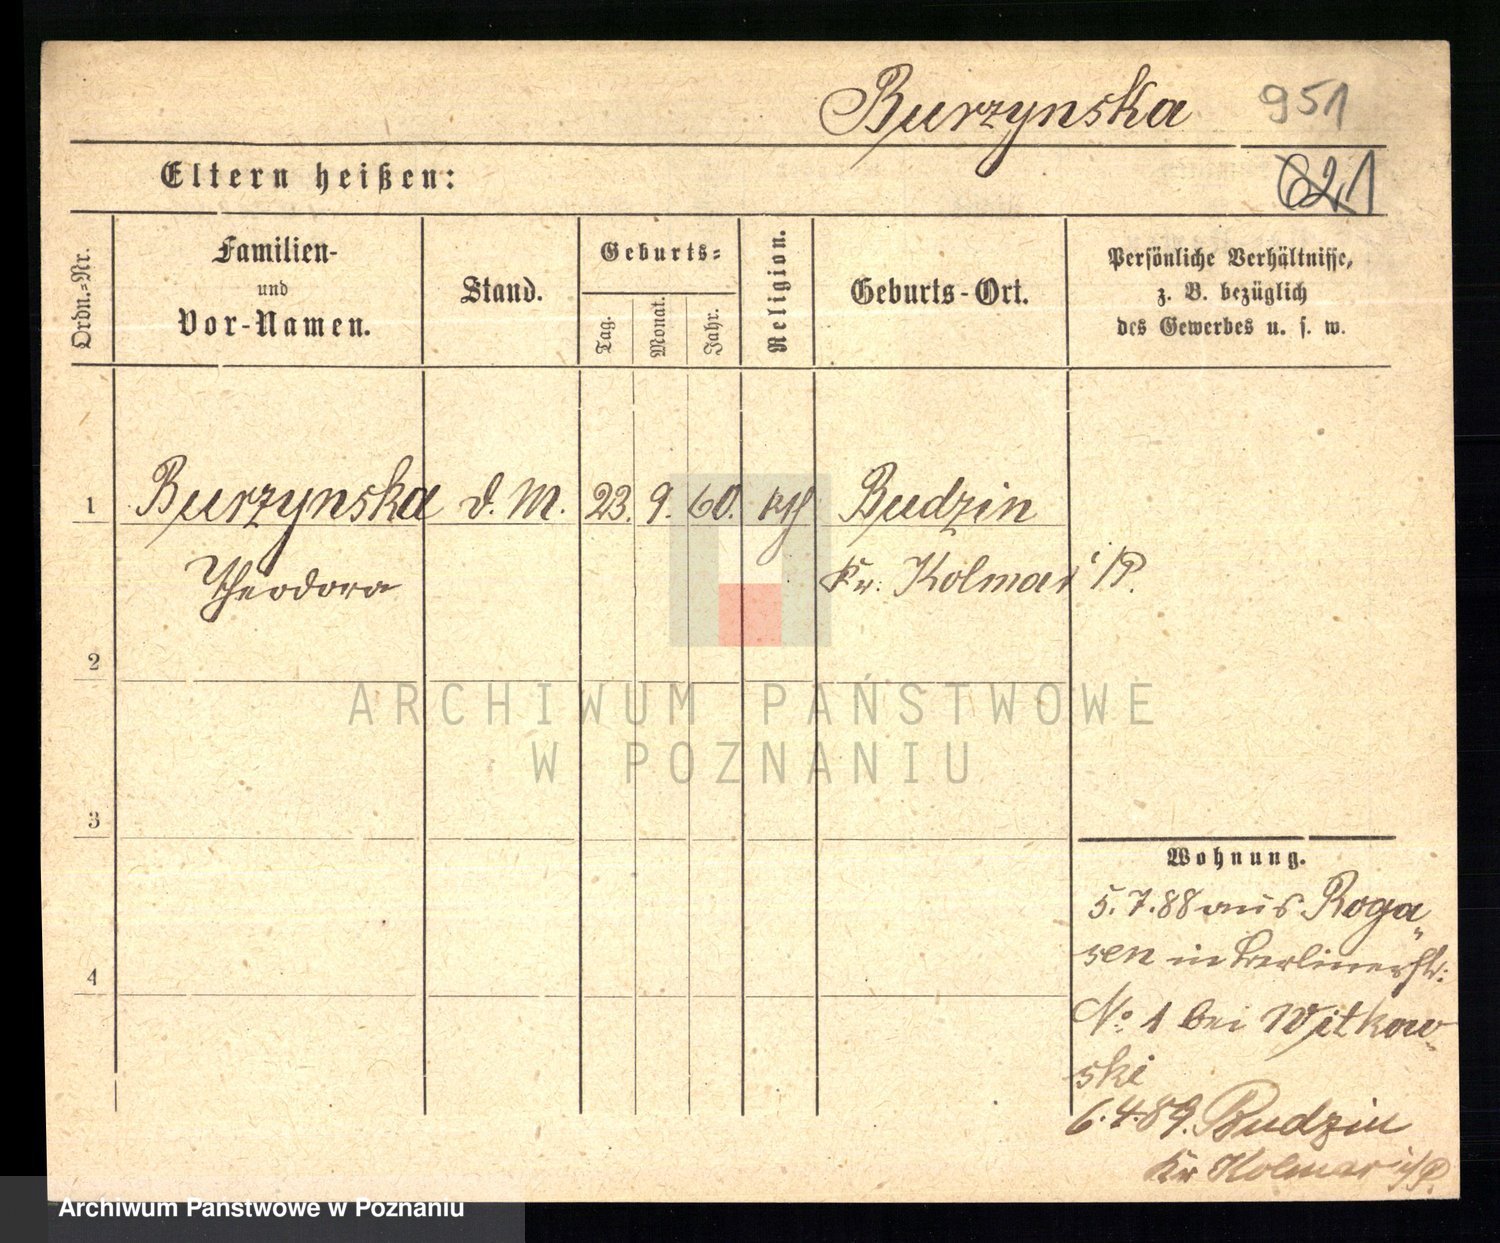 Burzynska
951
621
Eltern heißen:
Ordn.-Nr.
Familien-
und
Vor-Namen.
Stand.
Geburts-
Tag.
Monat.
Jahr.
Religion.
Geburts-Ort.
Persönliche Verhältnisse,
z. B. bezüglich
des Gewerbes u. s. w.
1 Burzynska d. M. 23. 9. 60. kth Budzin
Theodora Kr. Kolmar i/P.
2
3
4
ARCHIWUM PAŃSTWOWE
W POZNANIU
Wohnung.
5.7.88 aus Roga„
sen in Berlinerstr:
No 1 bei Witkow„
ski
6.4.89. Budzin
Kr Kolmar i/P.
Archiwum Państwowe w Poznaniu